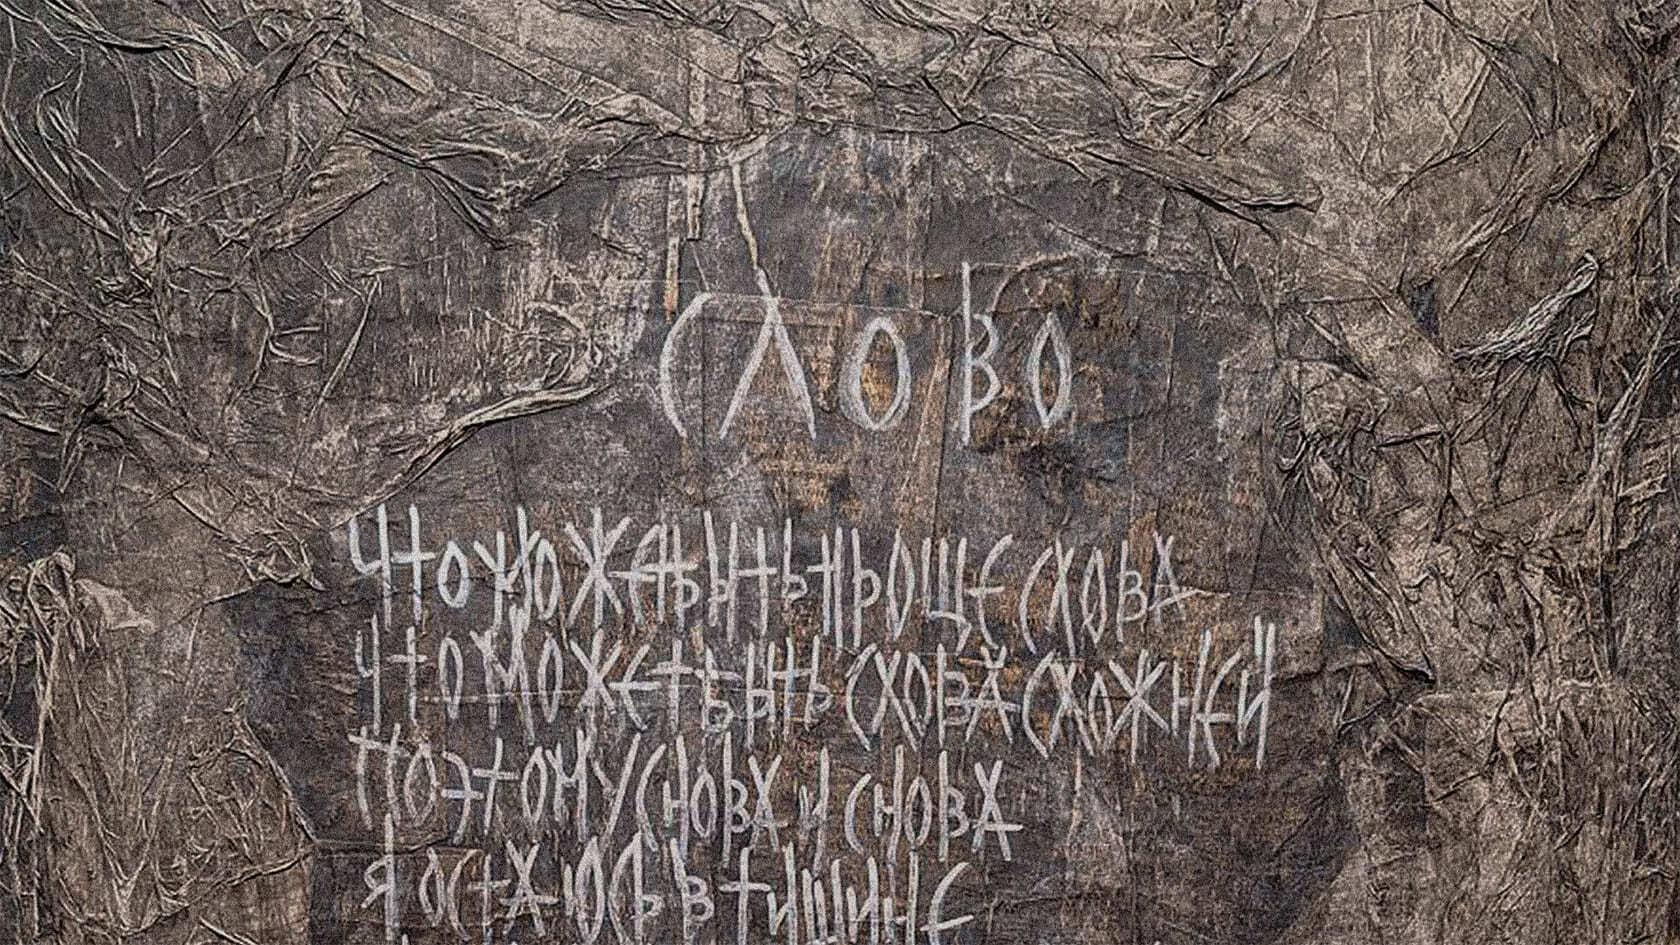 СЛОВО
ЧТО МОЖЕТ БЫТЬ ПРОЩЕ СЛОВА
ЧТО МОЖЕТ БЫТЬ СЛОВА СЛОЖНЕЙ
ПОЭТОМУ СНОВА И СНОВА
Я ОСТАЮСЬ В ТИШИНЕ